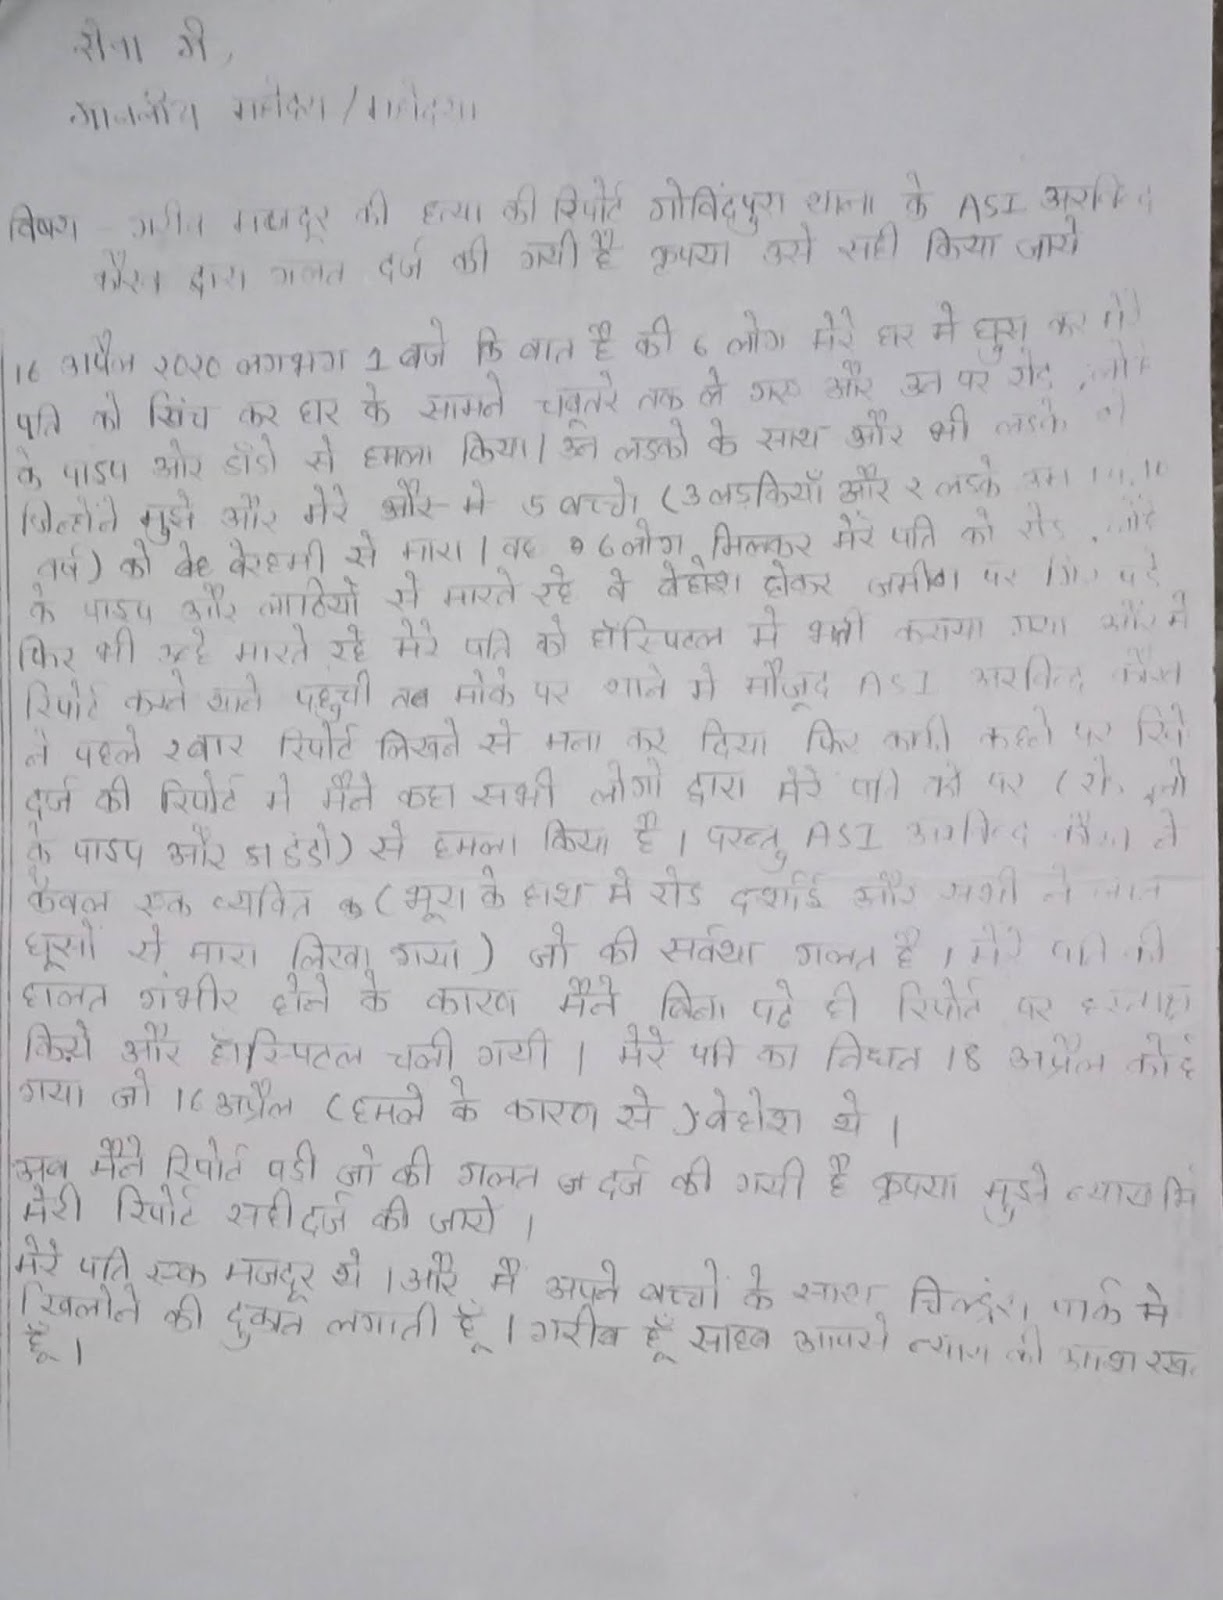 सेवा में,
माननीय महोदय/महोदया
विषय - गरीब मजदूर की हत्या की रिपोर्ट गोविंदपुरा थाना के ASI अरविन्द
कौरव द्वारा गलत दर्ज की गयी है कृपया उसे सही किया जाये
16 अप्रैल २०२० लगभग 1 बजे कि बात है की 6 लोग मेरे घर मे घुस कर मेरे
पति को खिंच कर घर के सामने चबूतरे तक ले गए और उन पर रोड, लोहे
के पाइप ओर डंडो से हमला किया। उन लडको के साथ और भी लडके थे
जिन्होंने मुझे और मेरे और मे 5 बच्चो (3 लड़कियाँ और २ लडके
वर्ष) को बेरहमी से मारा। वह 6 लोग मिलकर मेरे पति को रोड, लोहे
के पाइप और लाठियों से मारते रहे वे बेहोश होकर जमीन पर गिर पडे
फिर भी उन्हे मारते रहे मेरे पति को हॉस्पिटल मे भर्ती कराया गया और मे
रिपोर्ट करने थाने पहुची तब मोके पर थाने मे मौजूद ASI अरविन्द कौरव
ने पहले २ बार रिपोर्ट लिखने से मना कर दिया फिर काफी कहने पर रिपो
दर्ज की रिपोर्ट मे मैने कहा सभी लोगो द्वारा मेरे पति को पर (रोड, लोहे
के पाइप और डंडो) से हमला किया है। परन्तु ASI अरविन्द कौरव ने
केवल एक व्यक्ति (भूरा के हाथ मे रोड दर्शाई और सभी ने लात
घूसों से मारा लिखा गया) जो की सर्वथा गलत है। मेरे पति की
हालत गंभीर होने के कारण मैने बिना पढे ही रिपोर्ट पर हस्ताक्ष
किये और हॉस्पिटल चली गयी। मेरे पति का निधन 18 अप्रैल को हो
गया जो 16 अप्रैल (हमले के कारण से) बेहोश थे।
अब मैने रिपोर्ट पडी जो की गलत दर्ज की गयी है कृपया मुझे न्याय मि
मेरी रिपोर्ट सही दर्ज की जाये।
मेरे पति एक मजदूर थे। और मै अपने बच्चों के साथ चिल्ड्रन पार्क मे
खिलोने की दुकान लगाती हूँ। गरीब हूँ साहब आपसे न्याय की आशा रख
हूँ।